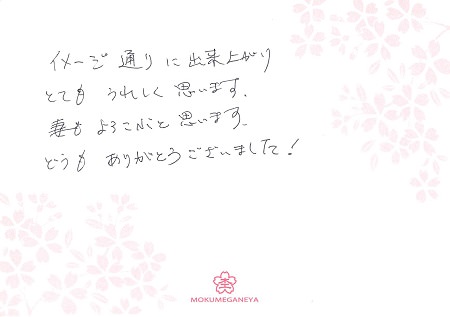 イメージ通りに出来上がり
とても うれしく思います.
妻も よろこぶと思います.
どうも ありがとうございました!
MOKUMEGANEYA